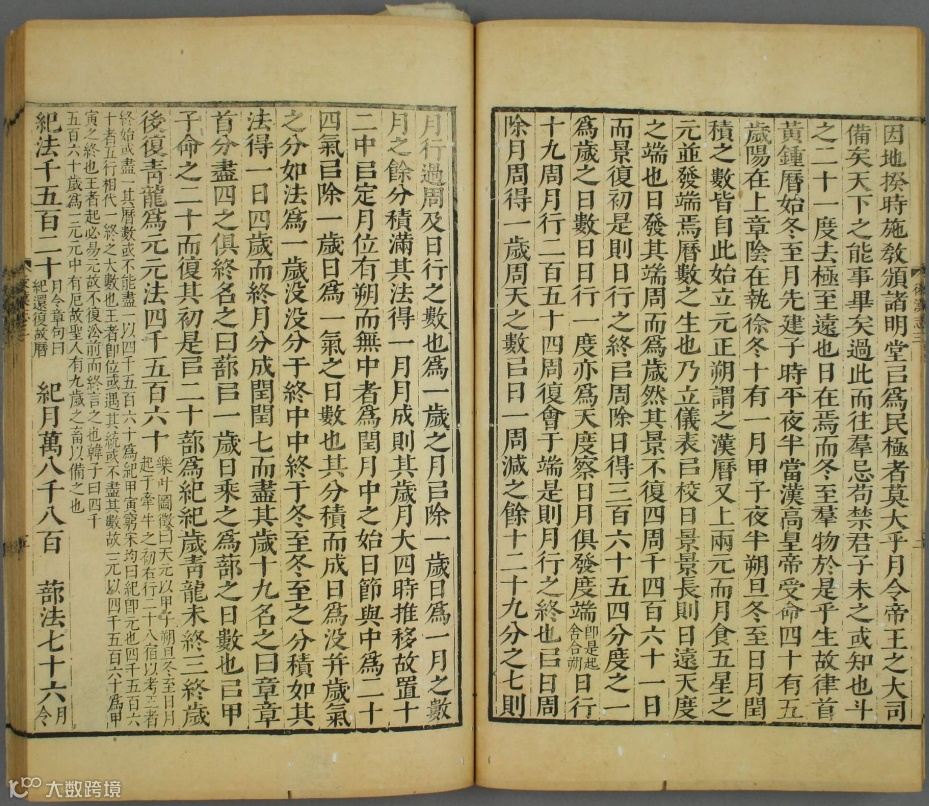 因地揆時施敎頒諸明堂㠯爲民極者莫大乎月令帝王之大司
備矣天下之能事畢矣過此而往羣忌苟禁君子未之或知也斗
之二十一度去極至遠也日在焉而冬至羣物於是乎生故律首
黃鍾曆始冬至月先建子時平夜半當漢高皇帝受命四十有五
歲陽在上章陰在執徐冬十有一月甲子夜半朔旦冬至日月閏
積之數皆自此始立元正朔謂之漢曆又上兩元而月食五星之
元並發端焉曆數之生也乃立儀表㠯校日景景長則日遠天度
之端也日發其端周而爲歲然其景不復四周千四百六十一日
而景復初是則日行之終㠯周除日得三百六十五四分度之一
爲歲之日數日日行一度亦爲天度察日月俱發度端卽是起舍合朔日行
十九周月行二百五十四周復會于端是則月行之終也㠯日周
除月周得一歲周天之數㠯日一周減之餘十二十九分之七則
月行過周及日行之數也爲一歲之月㠯除一歲日爲一月之數
月之餘分積滿其法得一月月成則其歲月大四時推移故置十
二中㠯定月位有朔而無中者爲閏月中之始日節與中爲二十
四氣㠯除一歲日爲一氣之日數也其分積而成日爲没并歲氣
之分如法爲一歲没没分于終中中終于冬至冬至之分積如其
法得一日四歲而終月分成閏閏七而盡其歲十九名之曰章章
首分盡四之俱終名之曰蔀㠯一歲日乘之爲蔀之日數也㠯甲
子命之二十而復其初是㠯二十蔀爲紀紀歲靑龍未終三終歲
後復靑龍爲元元法四千五百六十樂叶圖徵曰天元以甲子朔旦冬至日月
起于牽牛之初右行二十八宿以考王者
終始或盡一其曆數或不能盡一以四千五百六十爲紀甲寅窮宋均曰紀卽元也四千五百六
十者五行相代一終之大數也王者卽位或遇其統或不盡其數故一元以四千五百六十爲甲
寅之終也王者起必易元故不復沿前而終言之也韓子曰四千
五百六十歲爲一元元中有厄故聖人有九歲之畜以備之也
紀法千五百二十月令章句曰紀還復故曆 紀月萬八千八百 蔀法七十六月令
後漢志三
大数跨境